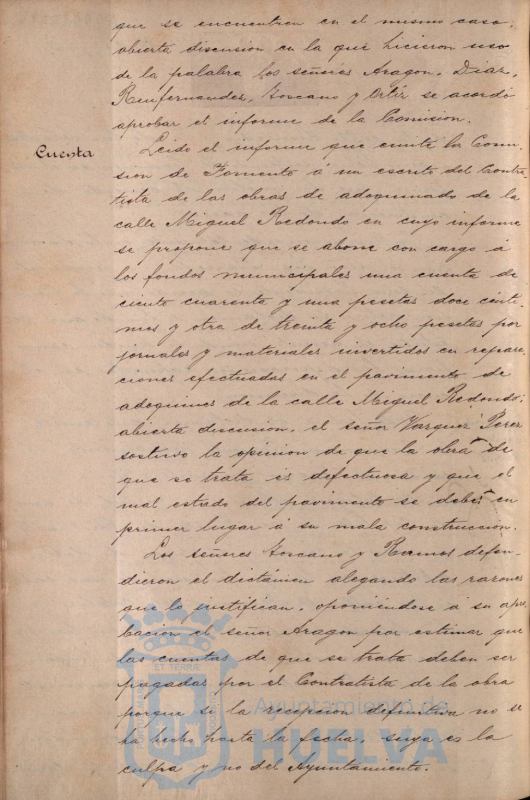 que se encuentren en el mismo caso
abierta discusion en la que hicieron uso
de la palabra los señores Aragon, Diaz,
Renfernandez, Toscano y Ortiz se acordó
aprobar el informe de la Comision.
Cuenta
Leido el informe que emite la Comi-
sion de Fomento á un escrito del Contra-
tista de las obras de adoquinado de la
calle Miguel Redondo en cuyo informe
se propone que se abone con cargo á
los fondos municipales una cuenta de
ciento cuarenta y una pesetas doce cénti-
mos y otra de treinta y ocho pesetas por
jornales y materiales invertidos en repara-
ciones efectuadas en el pavimento de
adoquines de la calle Miguel Redondo;
abierta discusion, el señor Vazquez Perez
sostuvo la opinion de que la obra de
que se trata es defectuosa y que el
mal estado del pavimento se debe en
primer lugar á su mala construccion.
Los señores Toscano y Ramos defen-
dieron el dictámen alegando las razones
que lo justifican, oponiéndose á su apro-
bacion el señor Aragon por estimar que
las cuentas de que se trata deben ser
pagadas por el Contratista de la obra
porque si la recepcion definitiva no se
ha hecho hasta la fecha suya es la
culpa y no del Ayuntamiento.
ET TERRA
Ayuntamiento de
HUELVA